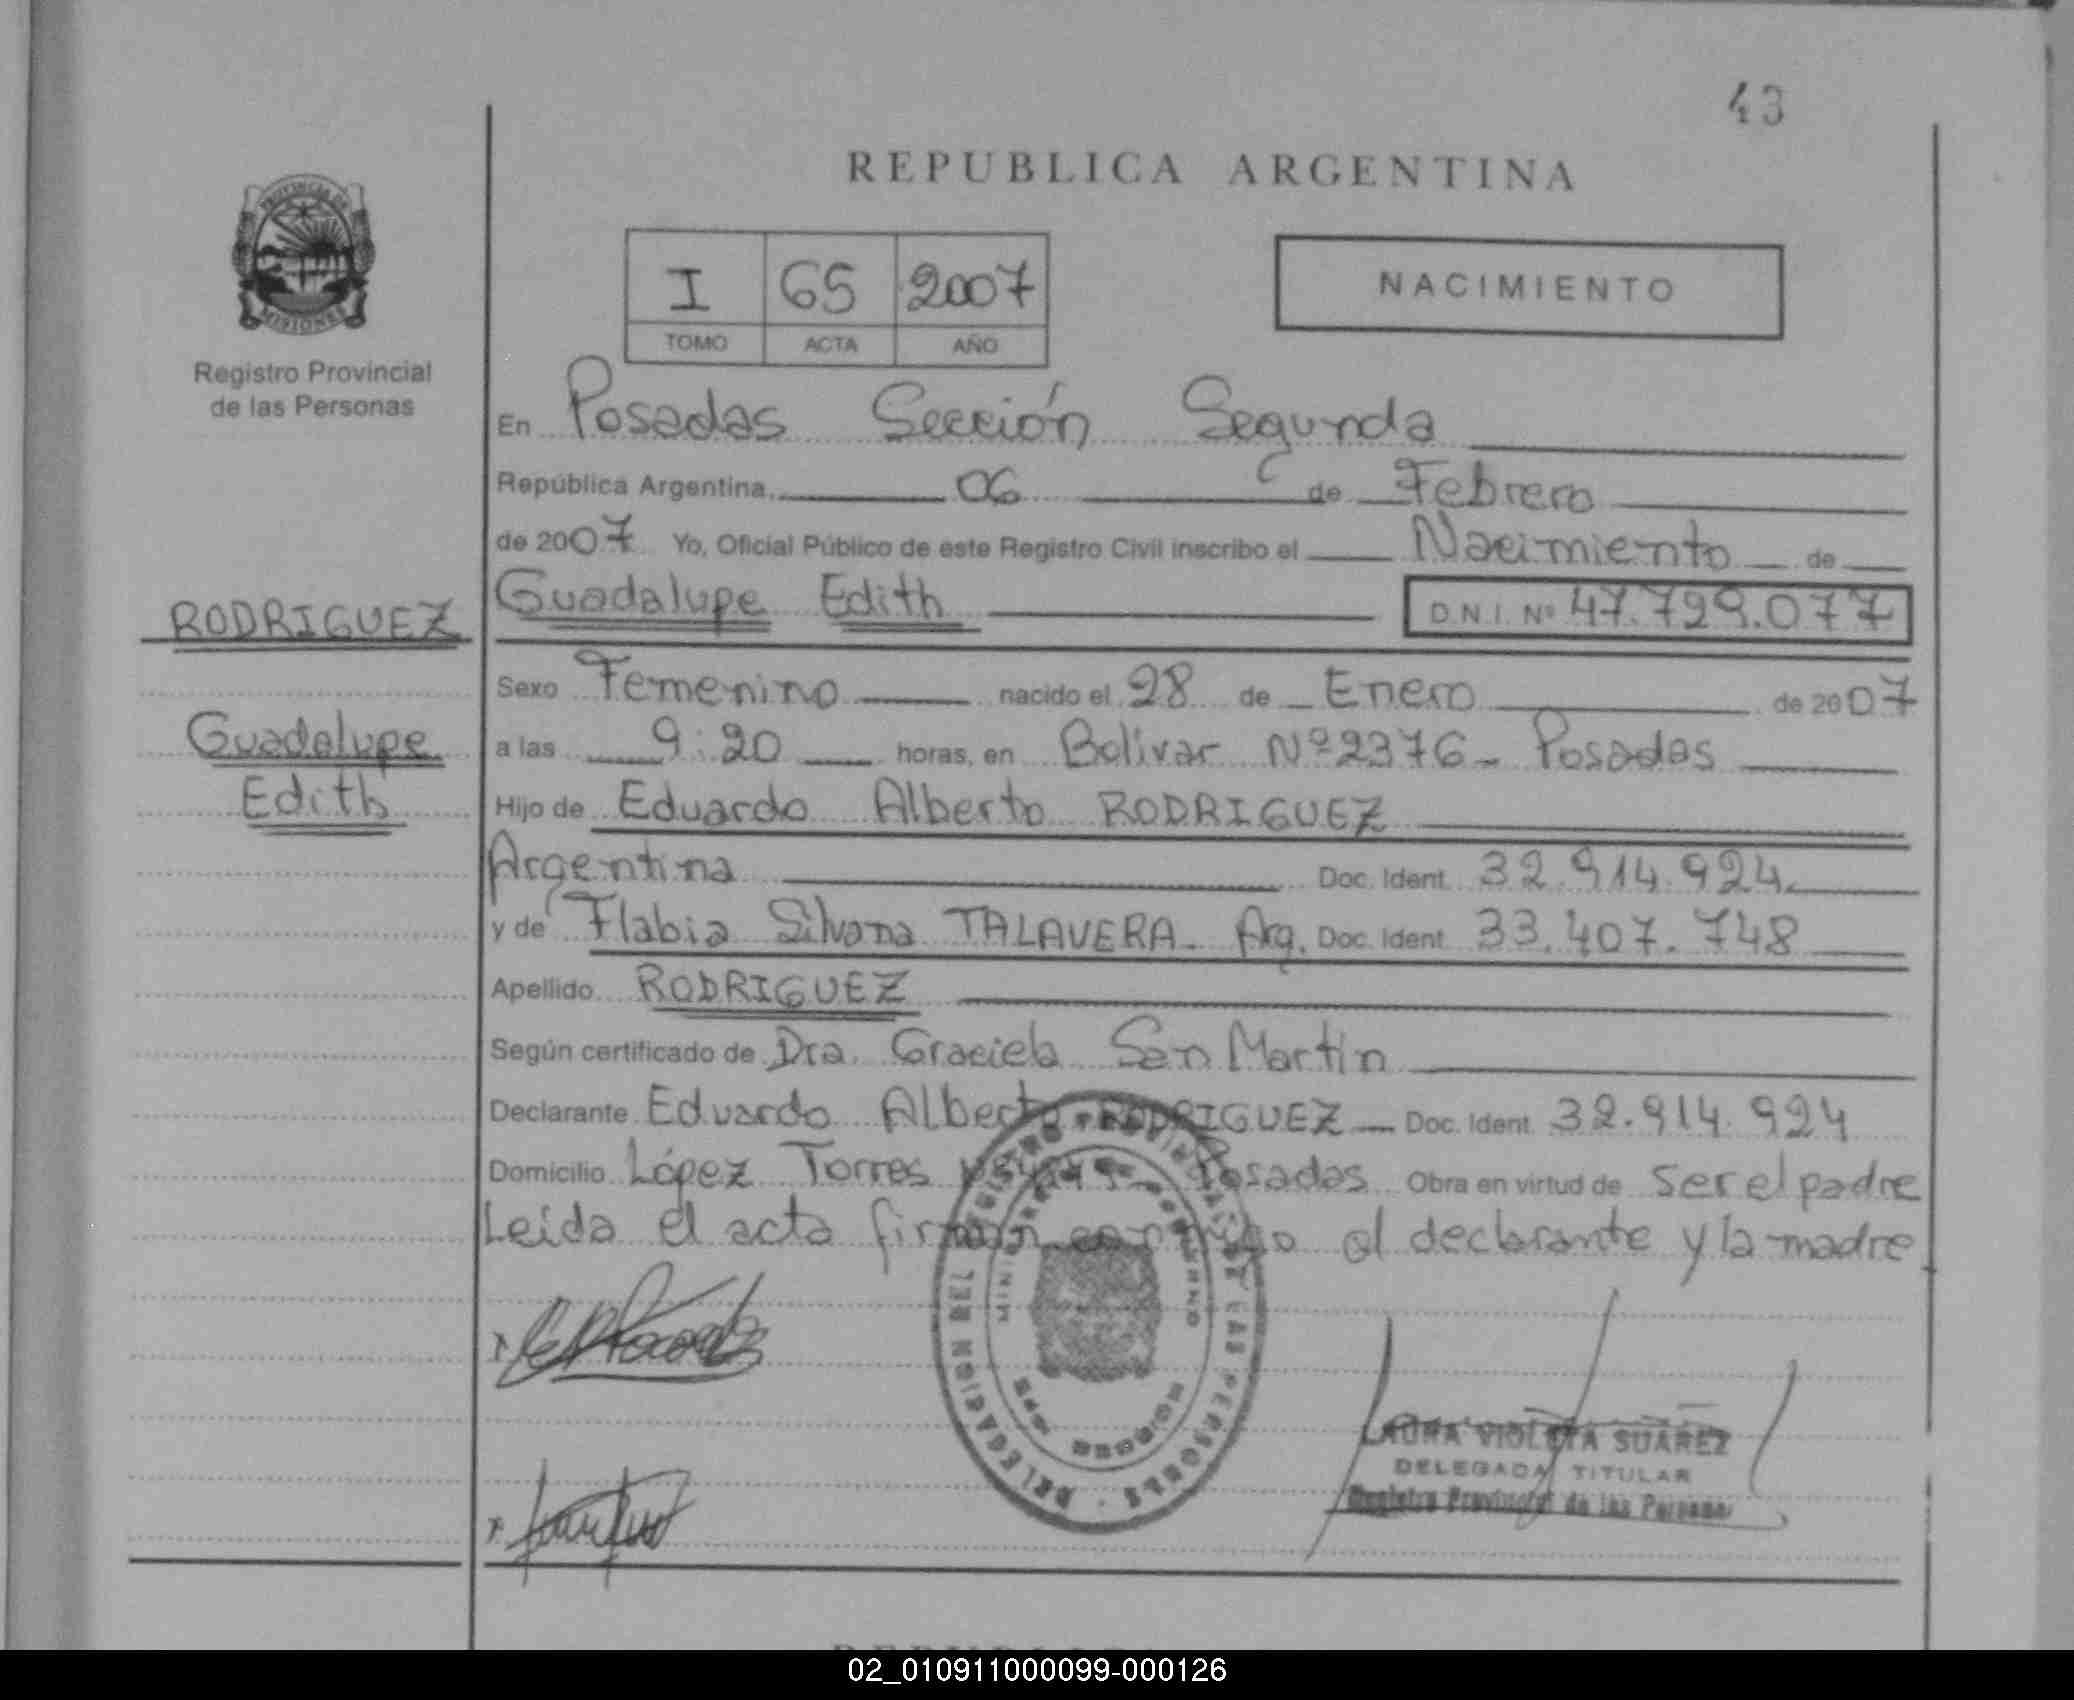 43
REPUBLICA ARGENTINA
PROVINCIA DE
MISIONES
Registro Provincial
de las Personas
I 65 2007
TOMO ACTA AÑO
NACIMIENTO
En Posadas Sección Segunda
República Argentina, 06 de Febrero
de 2007 Yo, Oficial Público de este Registro Civil inscribo el Nacimiento de
RODRIGUEZ
Guadalupe Edith D.N.I. Nº 47.799.077
Sexo Femenino nacido el 28 de Enero de 2007
Guadalupe
Edith
a las 9:20 horas, en Bolivar Nº 2376- Posadas
Hijo de Eduardo Alberto RODRIGUEZ
Argentina Doc. Ident. 32.914.924
y de Flabia Silvana TALAVERA. Arg. Doc. Ident. 33.407.748
Apellido RODRIGUEZ
Según certificado de Dra. Graciela San Martin
Declarante Eduardo Alberto RODRIGUEZ Doc. Ident. 32.914.924
Domicilio López Torres Posadas Obra en virtud de ser el padre
Leida el acta firman conmigo el declarante y la madre
DELEGACION DEL REGISTRO PROVINCIAL DE LAS PERSONAS
LAURA VIOLETA SUAREZ
DELEGADA TITULAR
Registro Provincial de las Personas
02_010911000099-000126